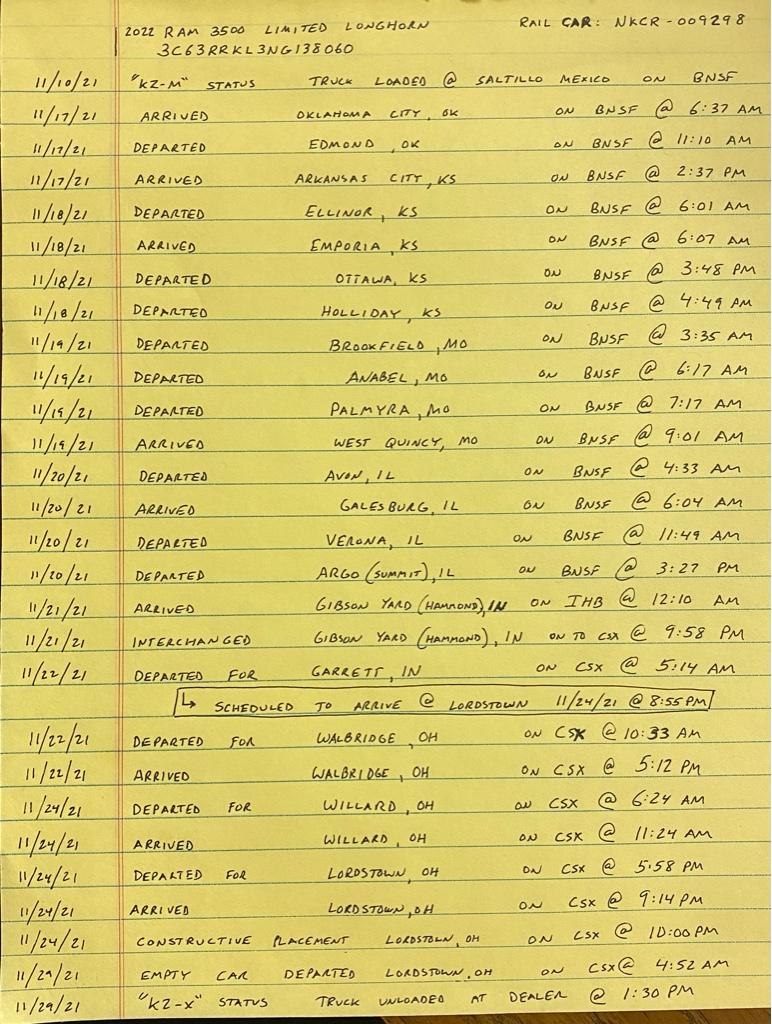 2022 RAM 3500 LIMITED LONGHORN RAIL CAR: NKCR-009298
3C63RRKL3NG138060
11/10/21 "KZ-M" STATUS TRUCK LOADED @ SALTILLO MEXICO ON BNSF
11/17/21 ARRIVED OKLAHOMA CITY, OK ON BNSF @ 6:37 AM
11/17/21 DEPARTED EDMOND, OK ON BNSF @ 11:10 AM
11/17/21 ARRIVED ARKANSAS CITY, KS ON BNSF @ 2:37 PM
11/18/21 DEPARTED ELLINOR, KS ON BNSF @ 6:01 AM
11/18/21 ARRIVED EMPORIA, KS ON BNSF @ 6:07 AM
11/18/21 DEPARTED OTTAWA, KS ON BNSF @ 3:48 PM
11/18/21 DEPARTED HOLLIDAY, KS ON BNSF @ 4:49 AM
11/19/21 DEPARTED BROOKFIELD, MO ON BNSF @ 3:35 AM
11/19/21 DEPARTED ANABEL, MO ON BNSF @ 6:17 AM
11/19/21 DEPARTED PALMYRA, MO ON BNSF @ 7:17 AM
11/19/21 ARRIVED WEST QUINCY, MO ON BNSF @ 9:01 AM
11/20/21 DEPARTED AVON, IL ON BNSF @ 4:33 AM
11/20/21 ARRIVED GALESBURG, IL ON BNSF @ 6:04 AM
11/20/21 DEPARTED VERONA, IL ON BNSF @ 11:49 AM
11/20/21 DEPARTED ARGO (SUMMIT), IL ON BNSF @ 3:27 PM
11/21/21 ARRIVED GIBSON YARD (HAMMOND), IN ON IHB @ 12:10 AM
11/21/21 INTERCHANGED GIBSON YARD (HAMMOND), IN ON TO CSX @ 9:58 PM
11/22/21 DEPARTED FOR GARRETT, IN ON CSX @ 5:14 AM
↳ SCHEDULED TO ARRIVE @ LORDSTOWN 11/24/21 @ 8:55 PM
11/22/21 DEPARTED FOR WALBRIDGE, OH ON CSX @ 10:33 AM
11/22/21 ARRIVED WALBRIDGE, OH ON CSX @ 5:12 PM
11/24/21 DEPARTED FOR WILLARD, OH ON CSX @ 6:24 AM
11/24/21 ARRIVED WILLARD, OH ON CSX @ 11:24 AM
11/24/21 DEPARTED FOR LORDSTOWN, OH ON CSX @ 5:58 PM
11/24/21 ARRIVED LORDSTOWN, OH ON CSX @ 9:14 PM
11/24/21 CONSTRUCTIVE PLACEMENT LORDSTOWN, OH ON CSX @ 10:00 PM
11/29/21 EMPTY CAR DEPARTED LORDSTOWN, OH ON CSX @ 4:52 AM
11/29/21 "KZ-X" STATUS TRUCK UNLOADED AT DEALER @ 1:30 PM